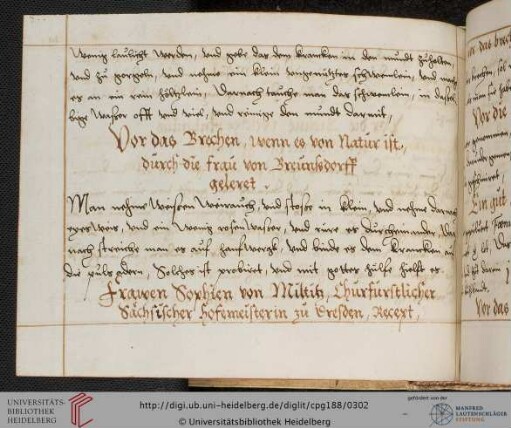 wenig laulicht werden, vnd gebe das dem krancken in den mundt zuhalten
vnd zu gorgeln, vnd nehme ein klein vngenütztes schwemlein, vnd mache
es an ein rein höltzlein, Darnach tauche man das schwemlein, in das
lige wasser offt vnd viel, vnd reinige den mundt darmit,
Vor das Brechen, wenn es von Natur ist,
durch die Frau von Breunßdorff
geleret.
Man nehme weissen weirauch, vnd stosse in klein, vnd nehme darnach
eyerweis, vnd ein wenig rosenwasser, vnd rüre es durcheinander,
nach streiche man es auf hanffwergk, vnd binde es dem krancken an
die puls adern, Solches ist probiert, vnd mit gottes hülfe hilft es
Frauen Sophien von Miltitz, Churfürstlicher
Sächsischer Hofemeisterin zu Dresden, Recept,
Vor die
Ein gut
Vor das
UNIVERSITÄTS-
BIBLIOTHEK
HEIDELBERG
http://digi.ub.uni-heidelberg.de/diglit/cpg188/0302
© Universitätsbibliothek Heidelberg
gefördert von der
MANFRED
LAUTENSCHLÄGER
STIFTUNG